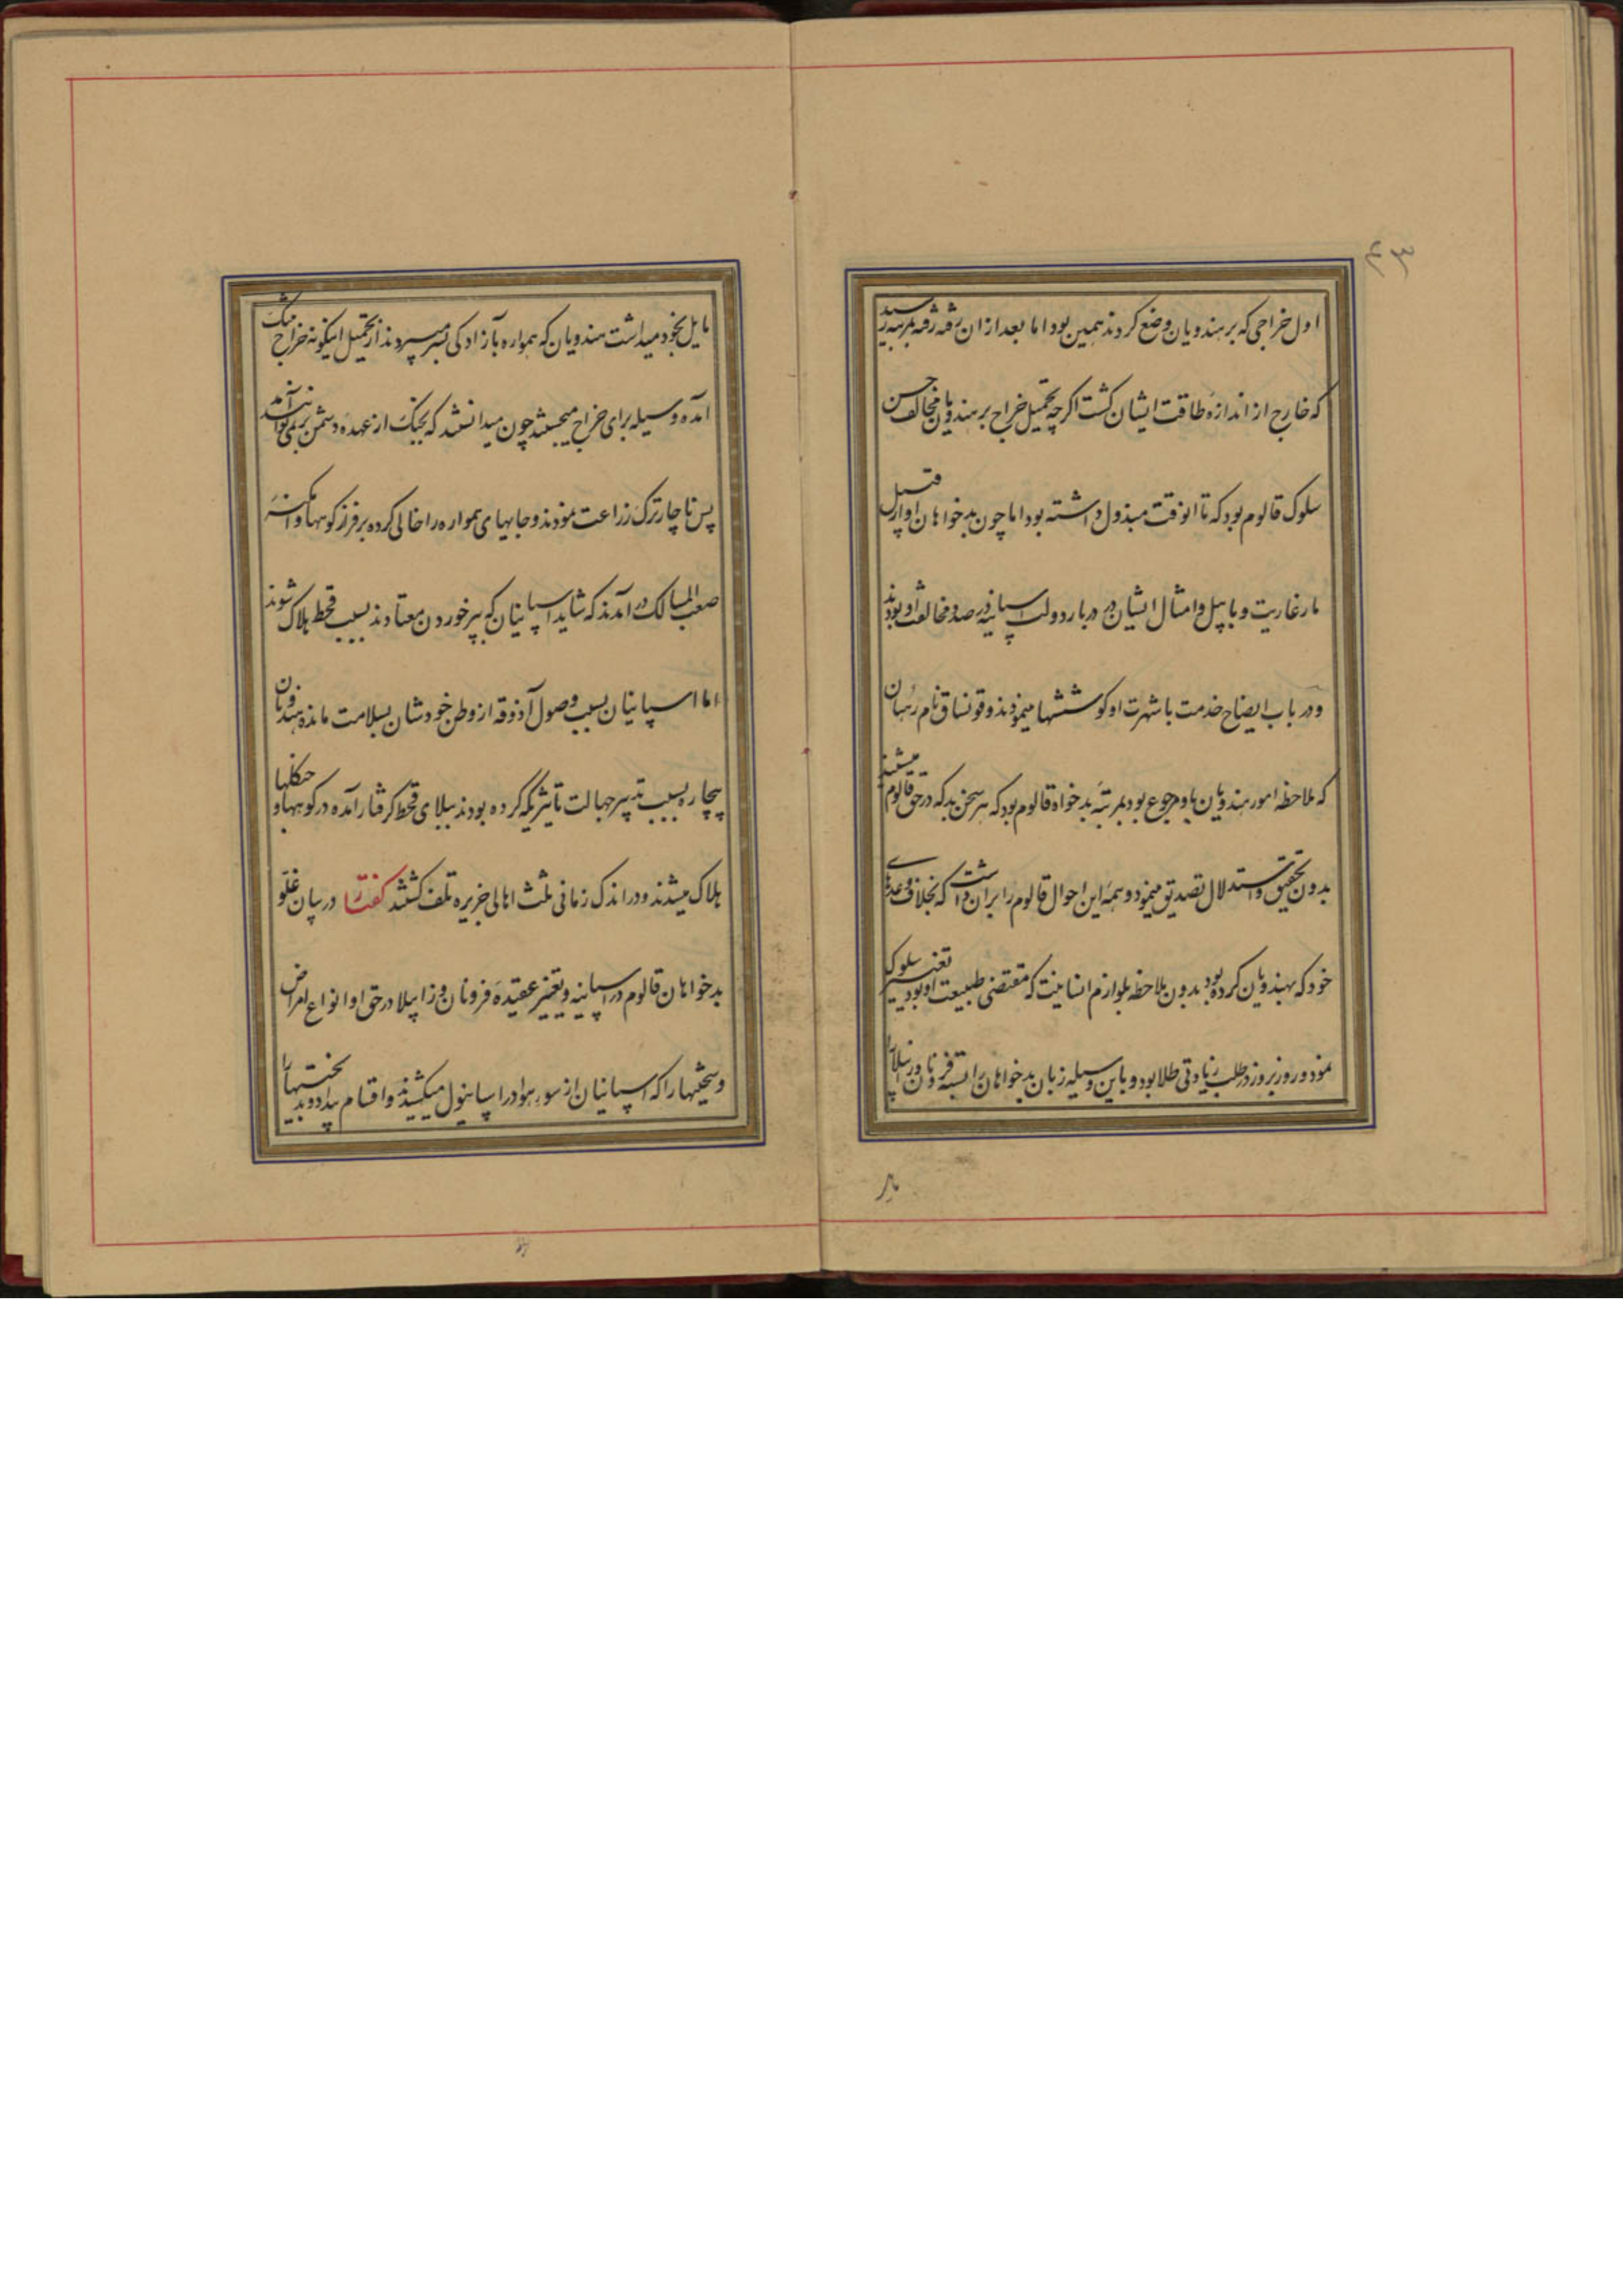 اول خراجی که بر هندویان وضع کردند همین بود اما بعد از ان رفته رفته بمرتبه رسید
که خارج از اندازه طاقت ایشان کشت اکرچه تحمیل خراج بر هندویان مخالف حسن
سلوک قالوم بود که تا انوقت مبذول داشته بود اما چون بدخواهان او از قبیل
مارغاریت و باپیل و امثال ایشان در دربار دولت اسپانیه در صدد مخالفت او بودند
و در باب ایضاح خدمت با شهرت او کوششها مینمودند و فونساق نام رهبان
که ملاحظه امور هندویان باو مرجوع بود بمرتبه بدخواه قالوم بود که هر سخن بد که در حق قالوم میشنید
بدون تحقیق و استدلال تصدیق مینمود و همه این احوال قالوم را بران داشت که بخلاف وعدهای
خود که بهندویان کرده بود بدون ملاحظه بلوازم انسانیت که مقتضی طبیعت او بود تغییر سلوک
نمود و روز بروز در طلب زیادتی طلا بود و باین وسیله زبان بدخواهان را بسته فرونان و زاپیلا را
ما
مایل بخود میداشت هندویان که همواره بآزادکی بسر میبردند از تحمیل اینکونه خراج بتنک
آمده وسیله برای خراج میجستند چون میدانستند که بجنک از عهده دشمن بر نمیتوانند آمد
پس ناچار ترک زراعت نمودند و جابهای همواره را خالی کرده بر فراز کوهها و امکنه
صعب المسالک در آمدند که شاید اسپانیان که بپر خوردن معتادند بسبب قحط هلاک شوند
اما اسپانیان بسبب وصول آذوقه از وطن خودشان بسلامت مانده هندویان
بیچاره بسبب تدبیر جهالت تأثیریکه کرده بودند ببلای قحط کرفتار آمده در کوهها و جنکلها
هلاک میشدند و در اندک زمانی ثلث اهالی جزیره تلف کشتند کفتار در بیان غلو
بدخواهان قالوم در اسپانیه و تغییر عقیده فرونان و زاپیلا در حق او انواع امراض
و سختیها را که اسپانیان از سوء هوا در اسپانیول میکشیدند و اقسام بیداد و بدبختیها را